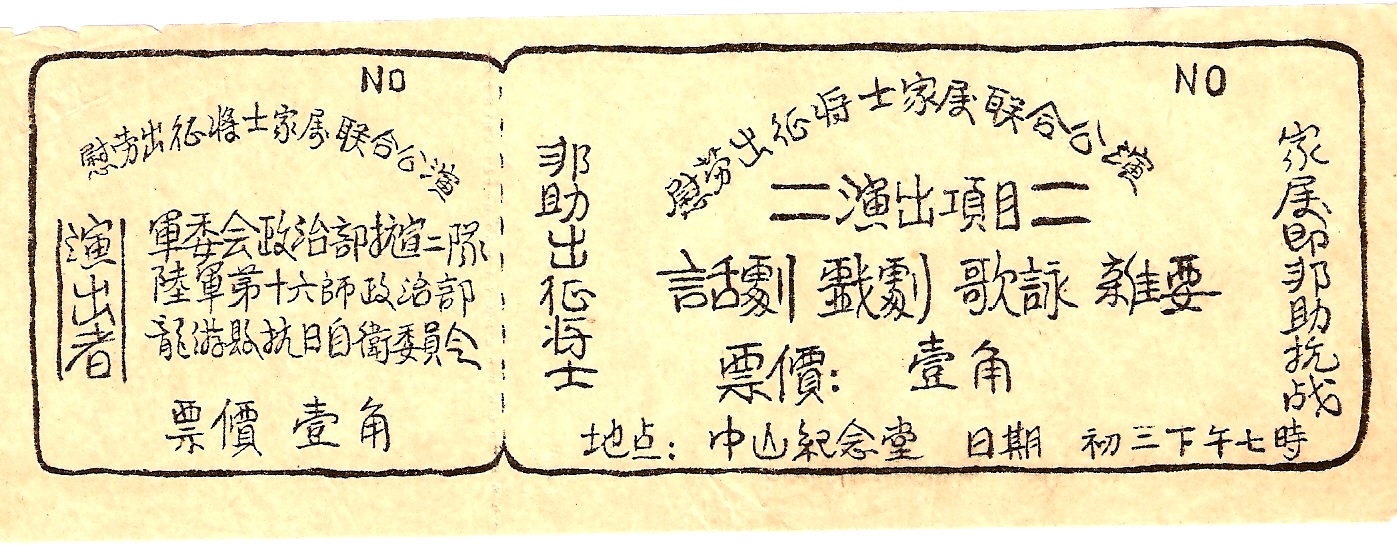 NO
慰劳出征将士家属联合公演
演出者
軍委会政治部抗宣二隊
陸軍第十六師政治部
龍游縣抗日自衛委員会
票價 壹角
NO
慰劳出征将士家属联合公演
邦助出征将士
=演出項目=
話劇 戲劇 歌詠 雜耍
票價: 壹角
地点: 中山紀念堂 日期 初三下午七時
家属即邦助抗战